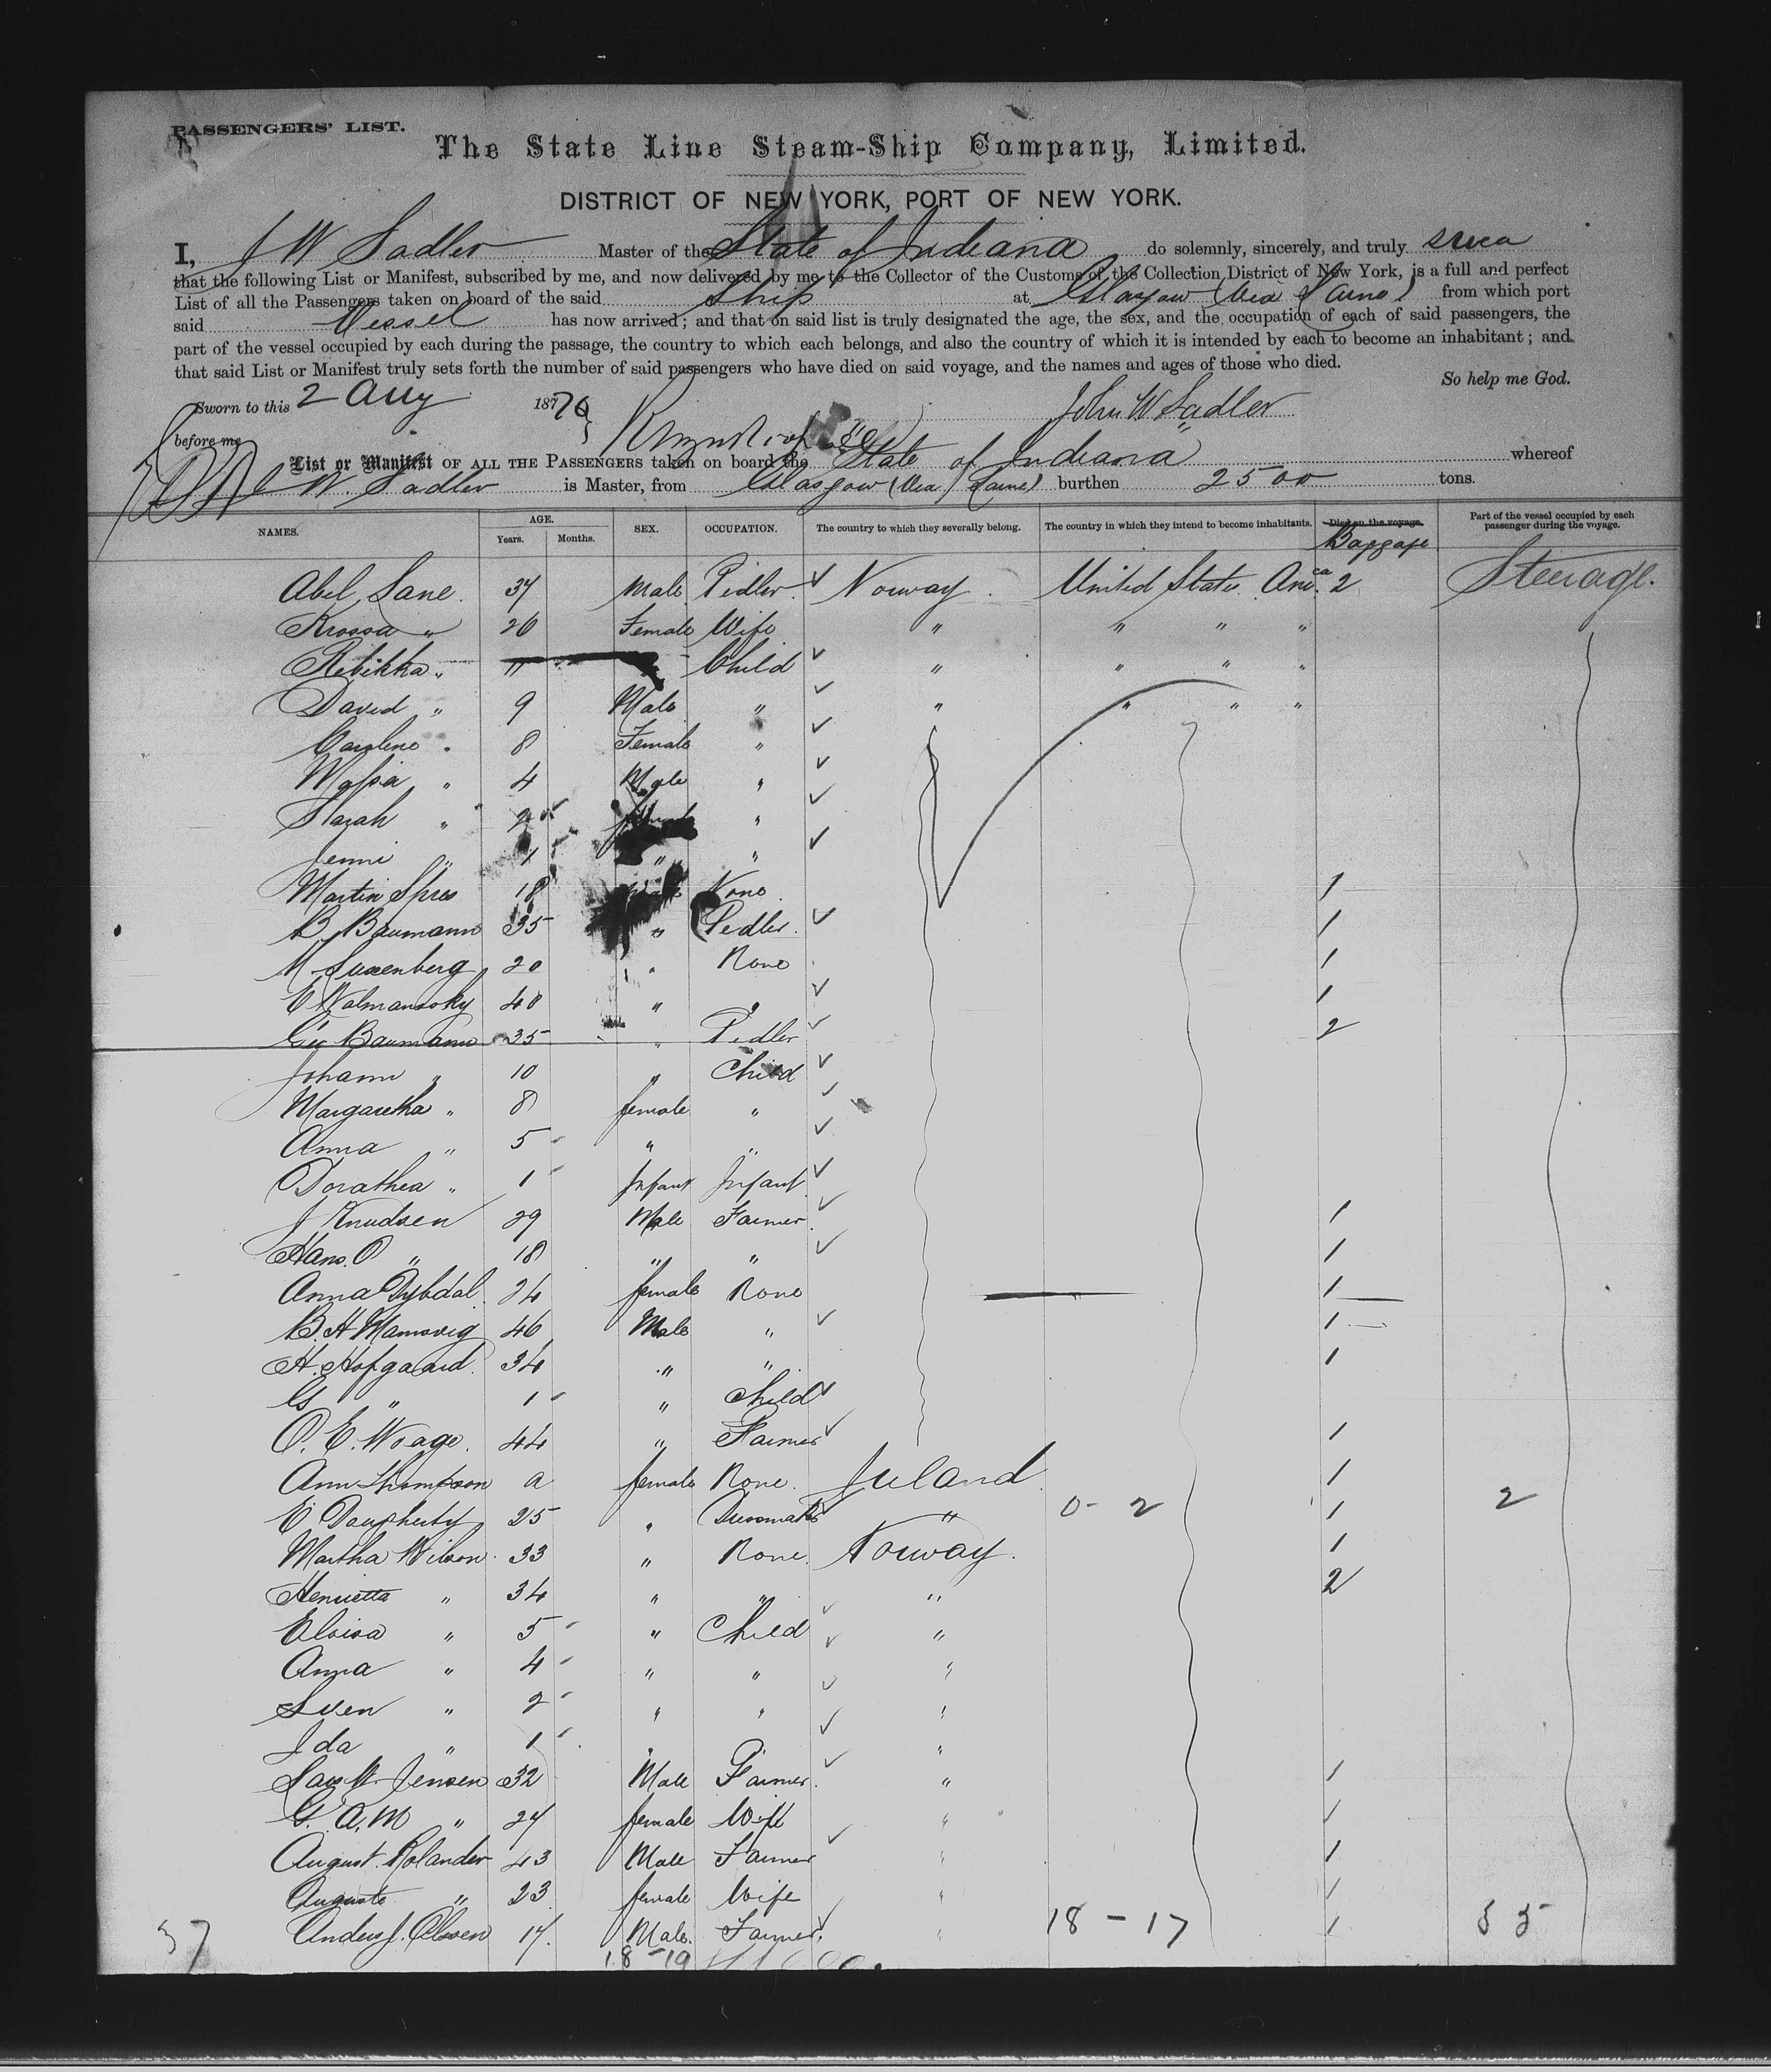 PASSENGERS' LIST.
The State Line Steam-Ship Company, Limited.
DISTRICT OF NEW YORK, PORT OF NEW YORK.
I, J W Sadler Master of the State of Indiana do solemnly, sincerely, and truly swear
that the following List or Manifest, subscribed by me, and now delivered by me to the Collector of the Customs of the Collection District of New York, is a full and perfect
List of all the Passengers taken on board of the said Ship at Glasgow (via Larne) from which port
said Vessel has now arrived; and that on said list is truly designated the age, the sex, and the occupation of each of said passengers, the
part of the vessel occupied by each during the passage, the country to which each belongs, and also the country of which it is intended by each to become an inhabitant; and
that said List or Manifest truly sets forth the number of said passengers who have died on said voyage, and the names and ages of those who died.
So help me God.
Sworn to this 2 Aug 1876 John W Sadler
before me
List or Manifest OF ALL THE PASSENGERS taken on board the State of Indiana whereof
W. Sadler is Master, from Glasgow (via Larne) burthen 2500 tons.
NAMES. AGE. Years. Months. SEX. OCCUPATION. The country to which they severally belong. The country in which they intend to become inhabitants. Died on the voyage. Baggage Part of the vessel occupied by each passenger during the voyage.
Abel Lane. 37 Male Pedler Norway United States Amca 2 Steerage.
Krossa " 26 Female Wife " " " "
Rebikka " 11 Child " " " "
David " 9 Male " " " " "
Caroline " 8 Female "
4 Male "
Sarah " 2 "
Jenni " 1 " "
Martin Spres 18 None 1
B. Baumann 35 " Pedler 1
M Luxenberg 20 " None 1
E Walmansoky 40 " " 1
Baumann 35 " Pedler 2
Johann " 10 " Child
Margaretha " 8 female "
Anna " 5 " "
Dorathea " 1 Infant Infant
J Knudsen 29 Male Farmer 1
Hans. O " 18 " " 1
Anna Dybdal 24 female None 1
B. H Mamsvig 46 Male " 1
H. Hofgaard. 34 " " 1
G " 1 " Child
O. E. Woage. 44 " Farmer 1
Ann Thompson a female None. Ireland 1
E Daugherty 25 " Dressmaker " 0-2 1 2
Martha Wilson 33 " None. Norway. 1
Henrietta " 34 " " " 2
Eloisa " 5 " Child "
Anna " 4 " " "
Sven " 2 " " "
Ida " 1 " "
Lars W. Jensen 32 Male Farmer. " 1
G. A. M " 27 female Wife " 1
August. Rolander 43 Male Farmer " 1
Auguste " 23 female Wife " 1
Anders J. Olssen 17. Male. Farmer. " 18-17 1 55
57
18-19